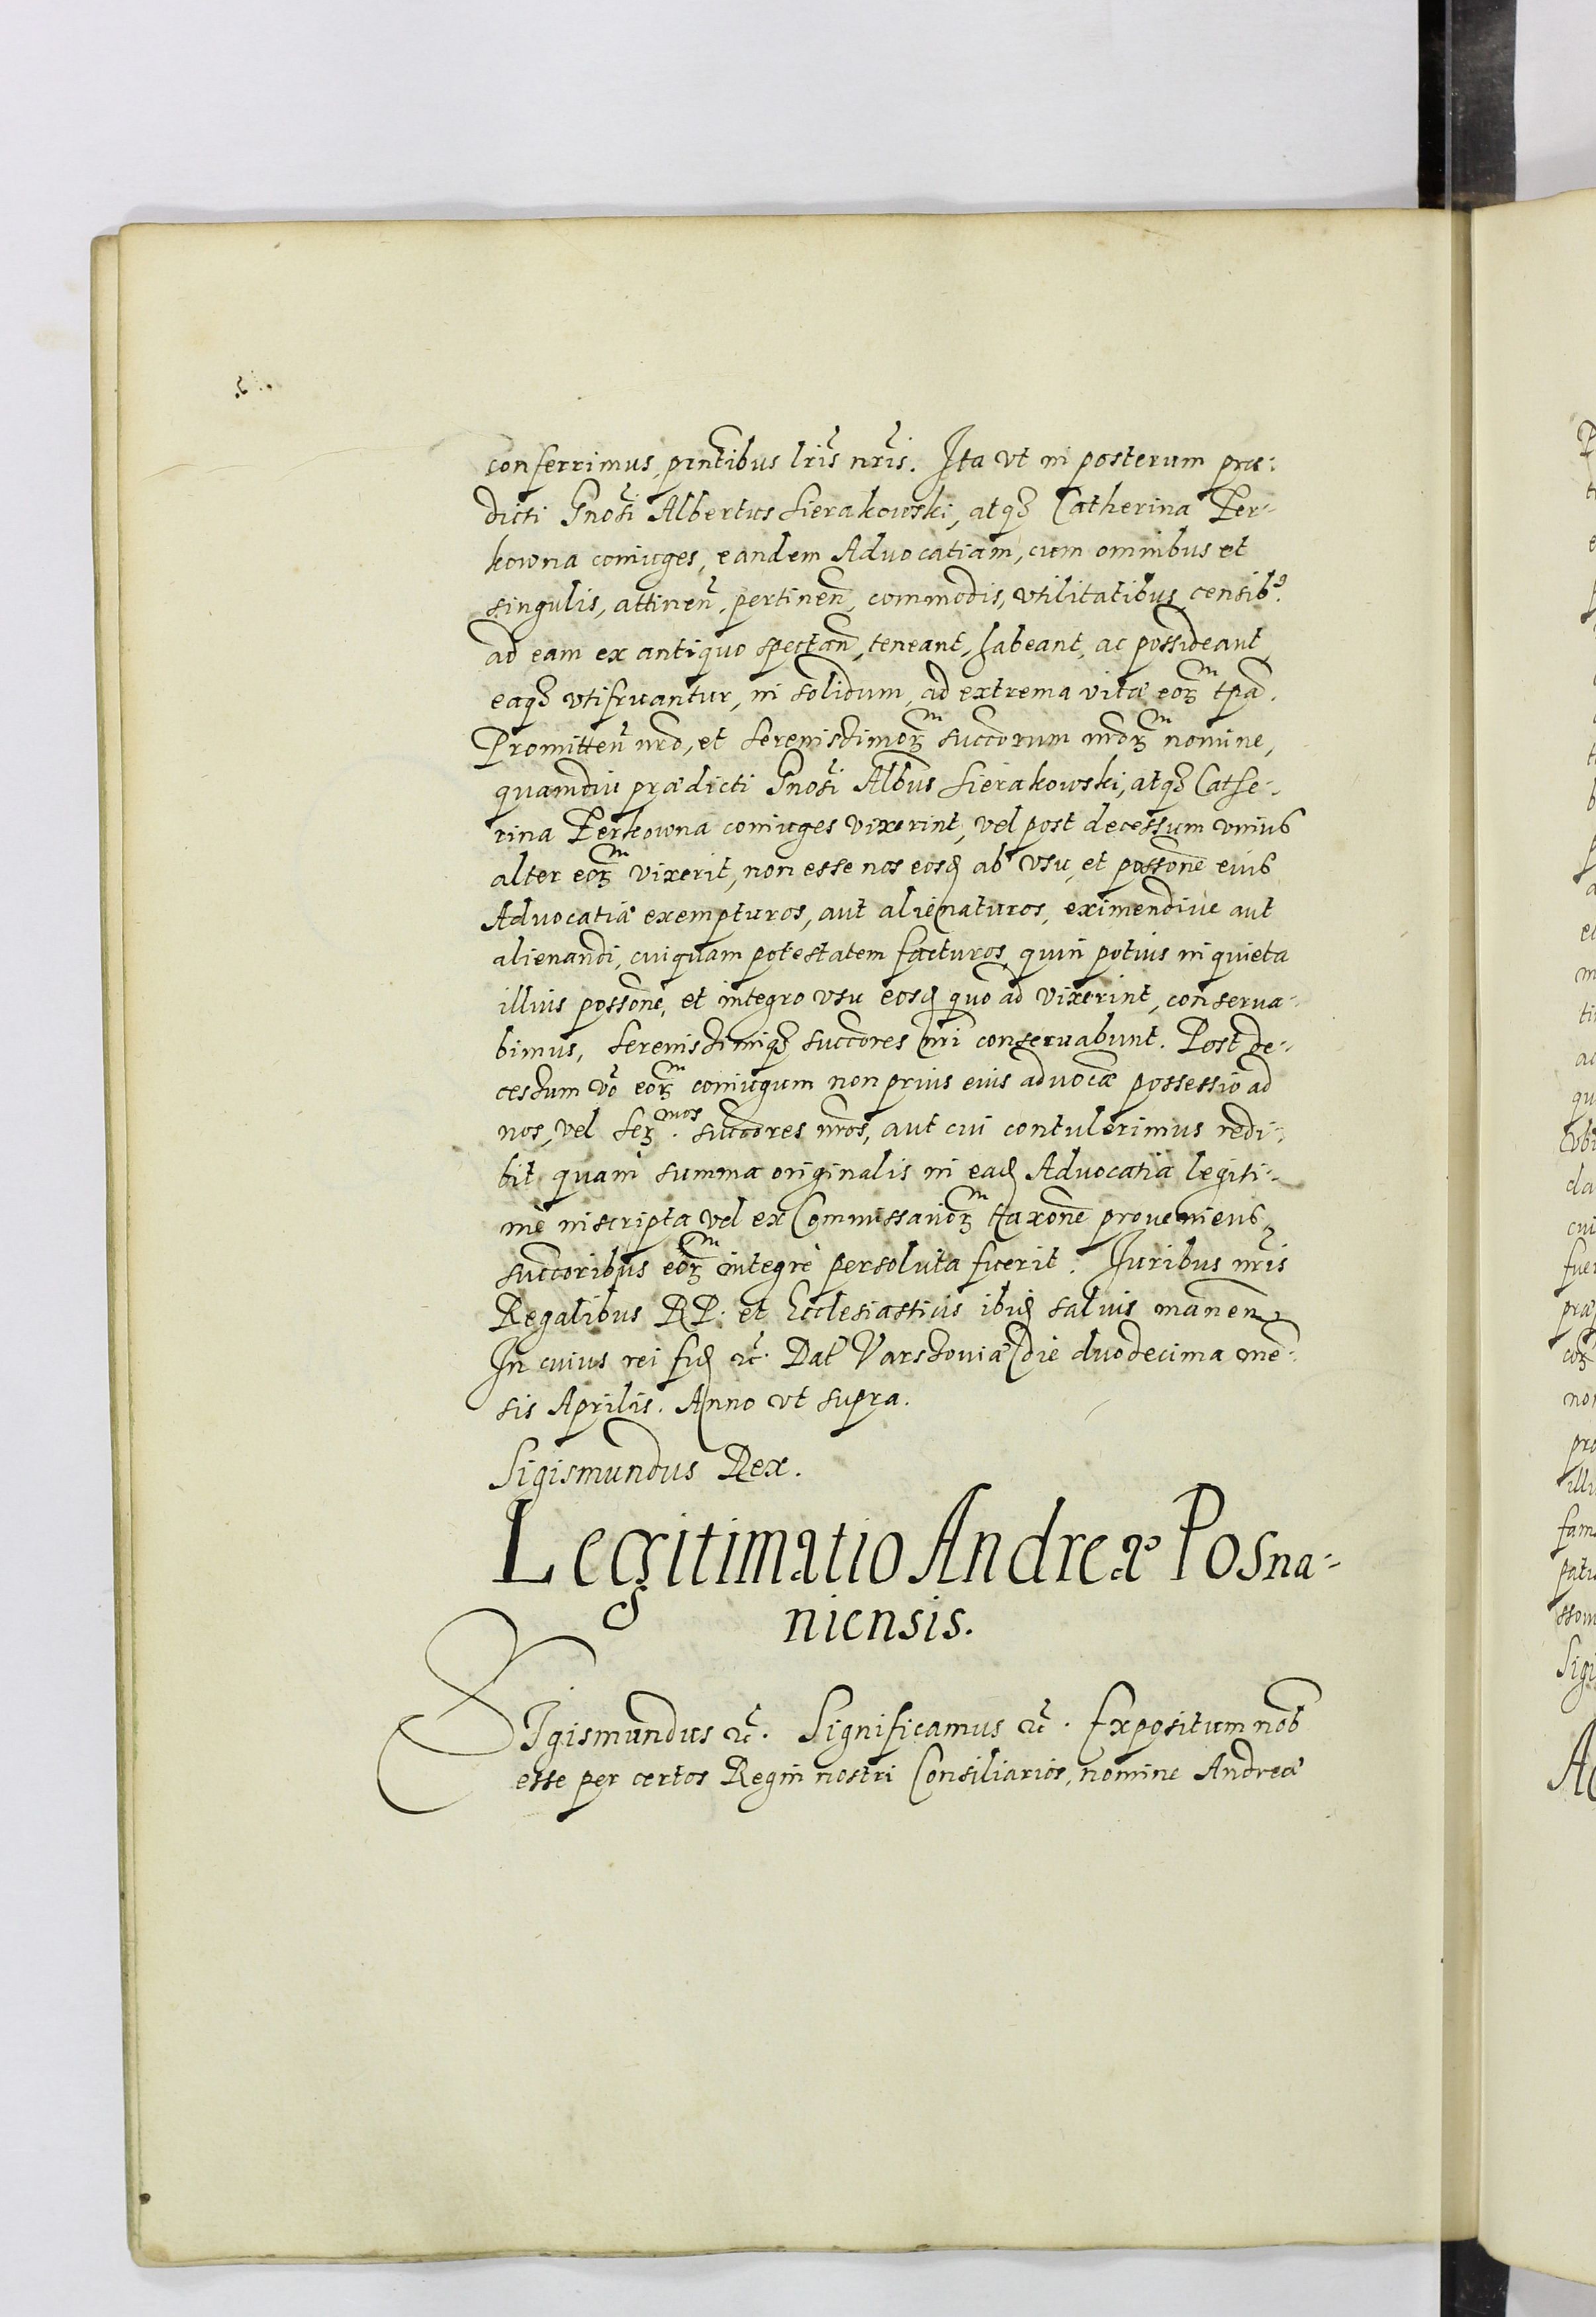 conferrimus, pñtibus lr̃is nr̃is. Ita vt in posterum præ:
dicti Gnosi Albertus Sierakowski, atqꝫ Catherina Per-
kowna coniuges, eandem Aduocatiam, cum omnibus et
singulis, attineñ, pertineñ, commodis, vtilitatibus censibꝰ.
ad eam ex antiquo spectañ, teneant, habeant, ac possideant
eaqꝫ vtifruantur, in solidum, ad extrema vitæ eoꝝm tp̃a.
Promitteñ nr̃o, et Serenissimoꝝm succorum nr̃oꝝm nomine,
quamdiu prædicti Gnosi Albus Sierakowski, atqꝫ Cathe-
rina Perkowna coniuges vixerint, vel post decessum vnius
alter eoꝝm vixerit, non esse nos eosd ab vsu, et possone eius
Aduocatiæ exempturos, aut alienaturos, eximendiue aut
alienandi, cuiquam potestatem facturos, quin potius in quieta
illius possone, et integro vsu eosd quo ad vixerint, conserua-
bimus, Serenissimiqꝫ succores nr̃i conseruabunt. Post de-
cessum vo eoꝝm coniugum non prius eius aduocæ possessio ad
nos, vel Sermos. succores nr̃os, aut cui contulerimus redi-
bit quam summa originalis in ead Aduocatia legiti-
mè inscripta vel ex Commissarioꝝm taxone proueniens
succoribus eoꝝm integrè persoluta fuerit. Iuribus nr̃is
Regalibus RP. et Ecclesiasticis ibid saluis maneñ
In cuius rei fid &c. Dat Varssouiæ die duodecima mē-
sis Aprilis. Anno vt supra.
Sigismundus Rex.
Legitimatio Andreæ Posna-
niensis.
SIgismundus &c. Significamus &c. Expositum nob
esse per certos Regni nostri Consiliarios, nomine Andreæ